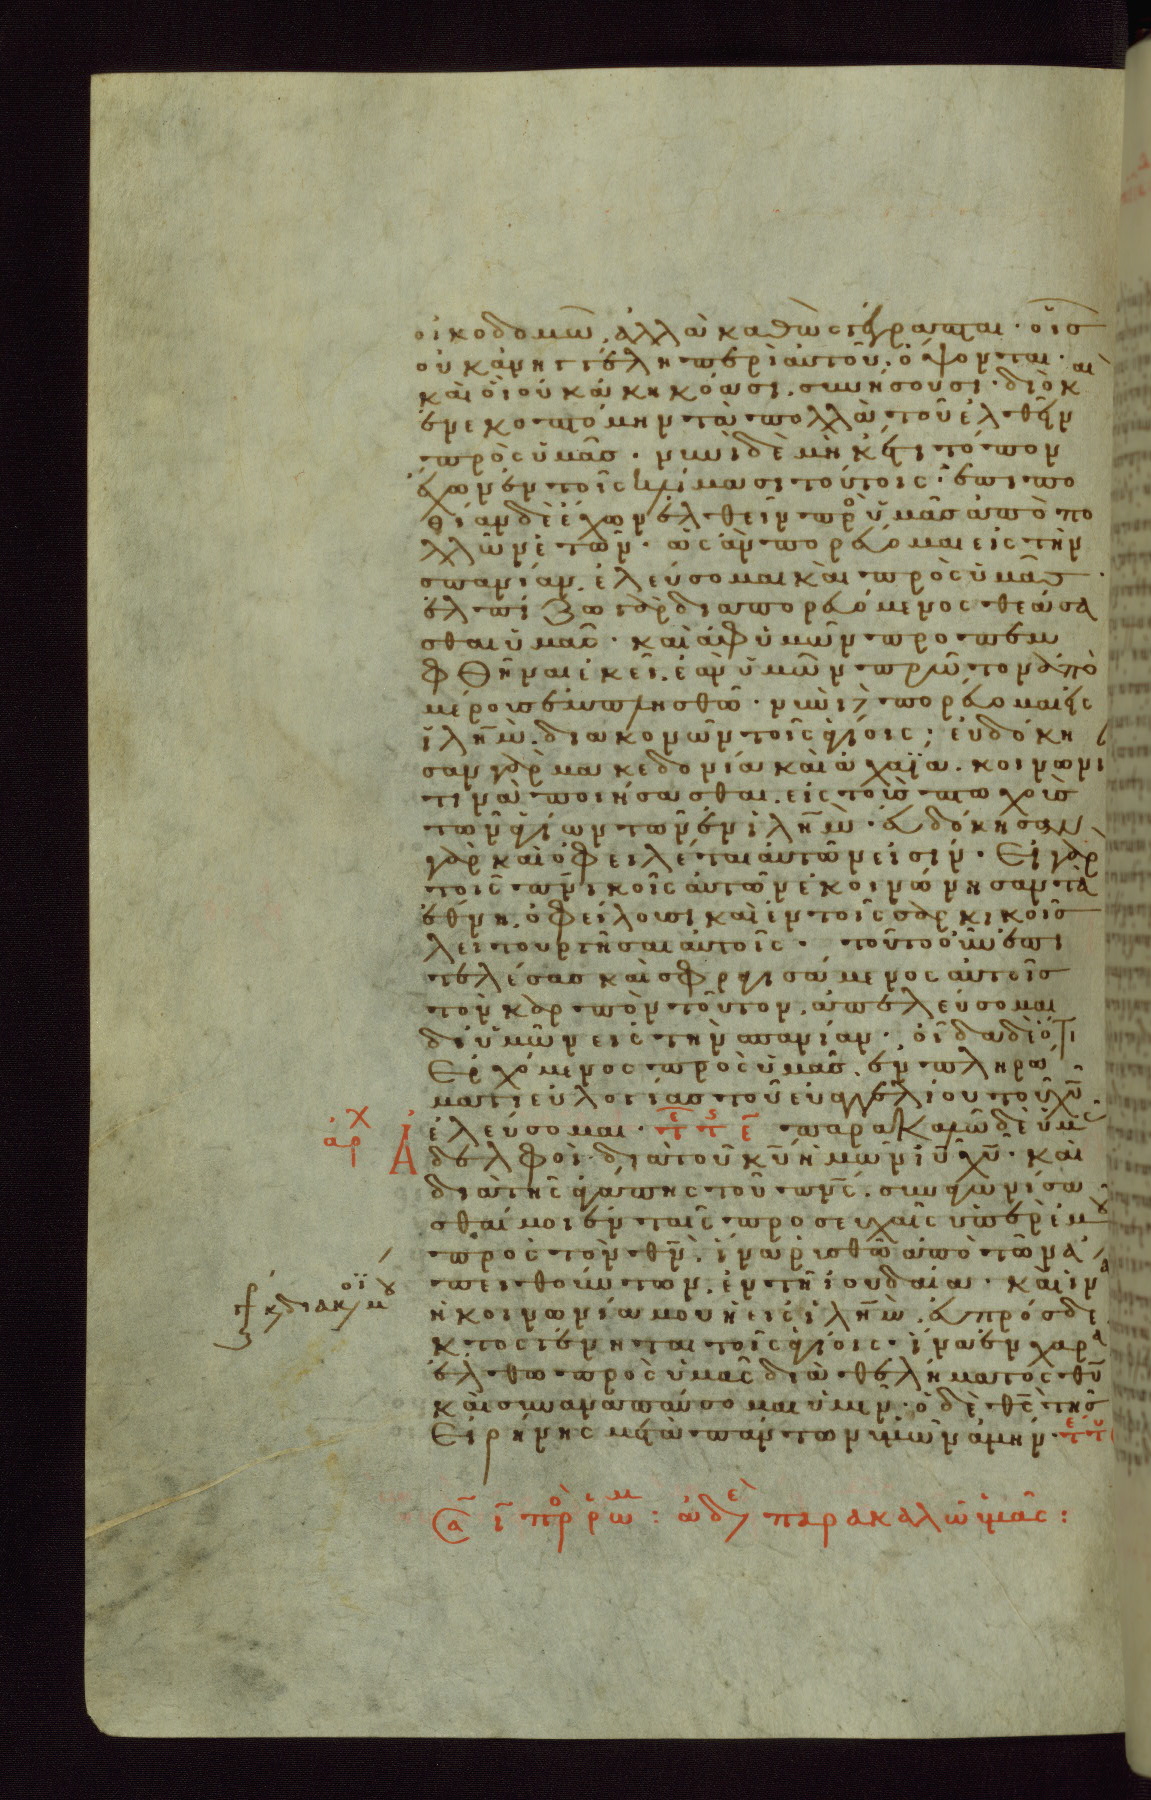 οἰκοδομῶ. ἀλλὰ καθὼς γέγραπται· οἷς
οὐκ ἀνηγγέλη περὶ αὐτοῦ. ὄψονται·
καὶ οἳ οὐκ ἀκηκόασι. συνήσουσι· διὸ καὶ
ἐνεκοπτόμην τὰ πολλὰ τοῦ ἐλθεῖν
πρὸς ὑμᾶς· νυνὶ δὲ μὴκέτι τόπον
ἔχων ἐν τοῖς κλίμασι τούτοις· ἐπιπο
θίαν δὲ ἔχων ἐλθεῖν πρὸς ὑμᾶς ἀπὸ πο
λλῶν ἐτῶν· ὡς ἂν πορεύομαι εἰς τὴν
σπανίαν. ἐλεύσομαι καὶ πρὸς ὑμᾶς·
ἐλπίζω γὰρ διαπορευόμενος θεάσα
σθαι ὑμᾶς· καὶ ἀφ ὑμῶν προπεμ
φθῆναι ἐκεῖ. ἐὰν ὑμῶν πρῶτον ἀπὸ
μέρους ἐμπλησθῶ· νυνὶ δὲ πορεύομαι εἰς
ἱλῆμ. διακονῶν τοῖς ἁγίοις· εὐδόκη
σαν γὰρ μακεδονία καὶ ἀχαΐα. κοινωνί
τινὰ ποιήσασθαι. εἰς τοὺς πτωχοὺς
τῶν ἁγίων τῶν ἐν ἱλῆμ· εὐδόκησαν
γὰρ καὶ ὀφειλέται αὐτῶν εἰσίν· Εἰ γὰρ
τοῖς πνικοῖς αὐτῶν ἐκοινώνησαν τὰ
ἔθνη. ὀφείλουσι καὶ ἐν τοῖς σαρκικοῖς
λειτουργῆσαι αὐτοῖς· τοῦτο οὖν ἐπι
τελέσας καὶ σφραγισάμενος αὐτοῖς
τὸν καρπὸν τοῦτον. ἀπελεύσομαι
δι ὑμῶν εἰς τὴν σπανίαν· οἶδα δὲ ὅτι
Ἐρχόμενος πρὸς ὑμᾶς. ἐν πληρώ
ματι εὐλογίας τοῦ εὐαγγελίου τοῦ χῦ
ἀρχ ἐλεύσομαι· παρακαλῶ δὲ ὑμᾶς
Ἀδελφοὶ. διὰ τοῦ κῦ ἡμῶν ιῦ χῦ· καὶ
διὰ τῆς ἀγάπης τοῦ πνς. συναγωνίσα
σθαί μοι ἐν ταῖς προσευχαῖς ὑπὲρ ἐμοῦ
πρὸς τὸν θν. ἵνα ῥυσθῶ ἀπὸ τῶν ἀ
πειθούντων. ἐν τῇ ἰουδαία· καὶ ἵνα
ἡ κοινωνία μου ἡ εἰς ἱλῆμ. εὐπρόσδε
κτος γένηται τοῖς ἁγίοις· ἵνα ἐν χαρᾶ
ἔλθω πρὸς ὑμᾶς διὰ θελήματος θῦ
καὶ συναναπαύσομαι ὑμῖν· ὁ δὲ θς τῆς
Εἰρήνης μετὰ πάντων ὑμῶν ἀμήν·
πρὸς ῥωμ: ἀδελ παρακαλῶ ὑμᾶς: